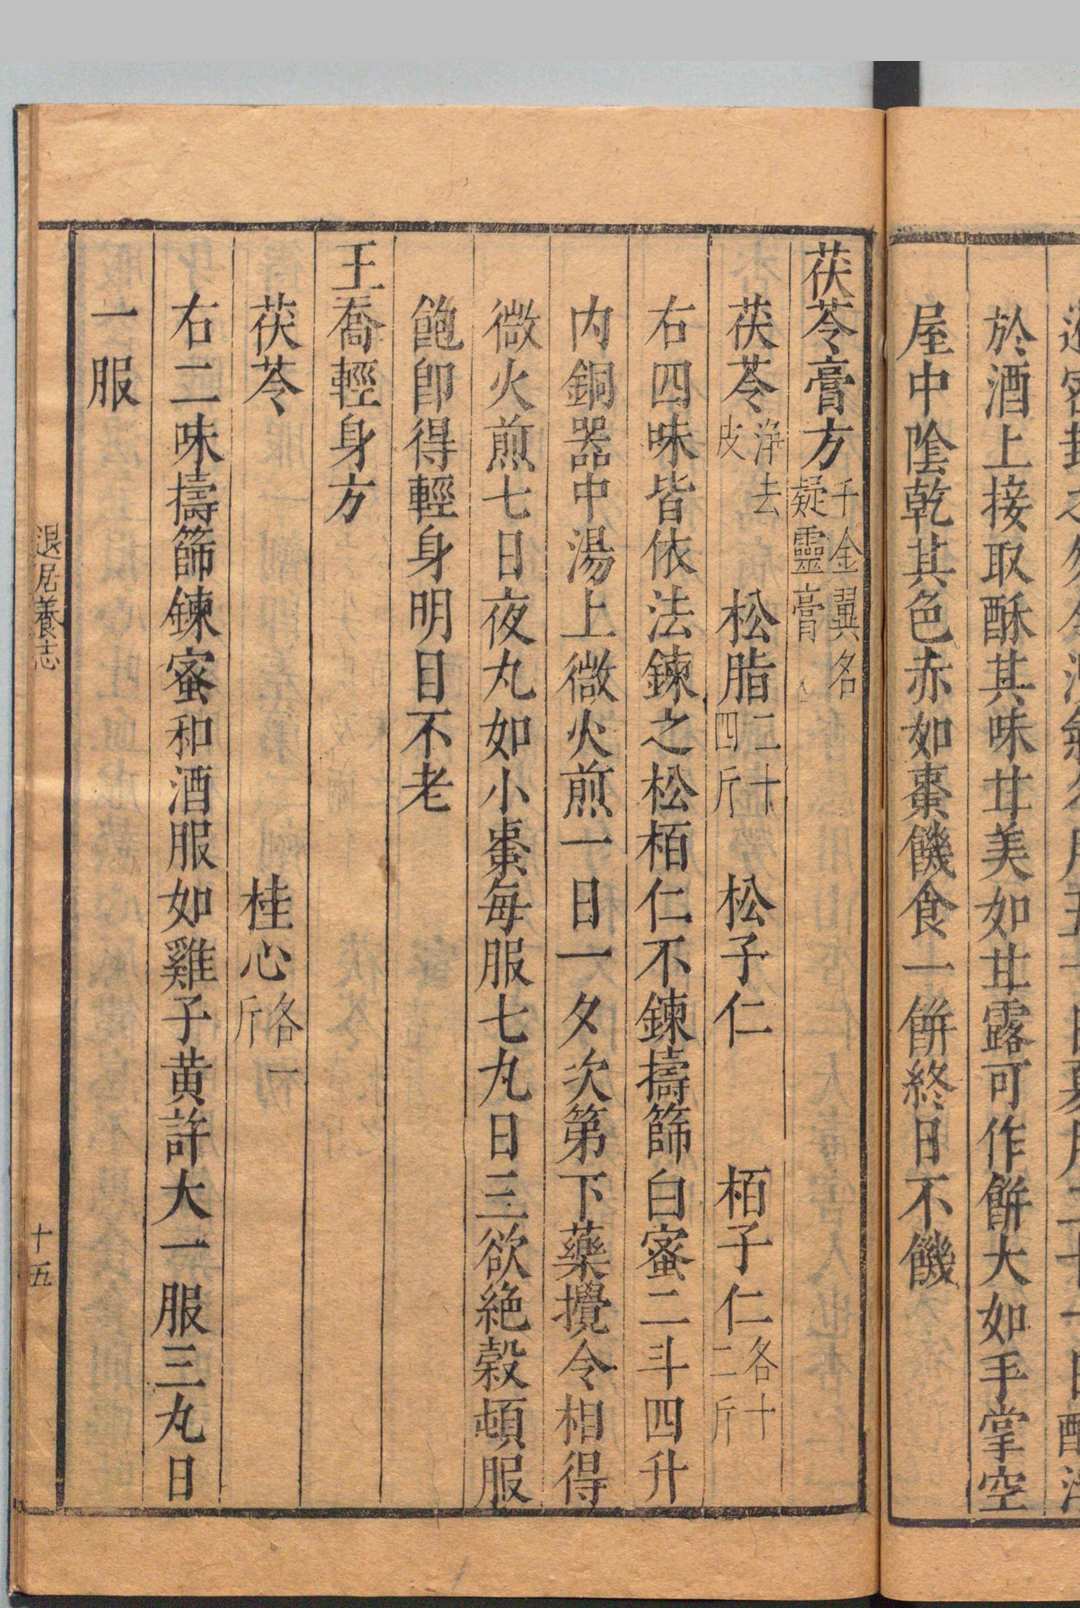 於酒上接取酥其味甘美如甘露可作餅大如手掌空
屋中陰乾其色赤如棗饑食一餅終日不饑
茯苓膏方千金翼名疑靈膏
茯苓淨去皮 松脂二十四斤 松子仁 栢子仁各十二斤
右四味皆依法鍊之松栢仁不鍊擣篩白蜜二斗四升
内銅器中湯上微火煎一日一夕次第下藥攪令相得
微火煎七日夜丸如小棗每服七丸日三欲絶穀頓服
飽卽得輕身明目不老
王喬輕身方
茯苓 桂心各一斤
右二味擣篩鍊蜜和酒服如雞子黄許大一服三丸日
一服
退居養志
十五